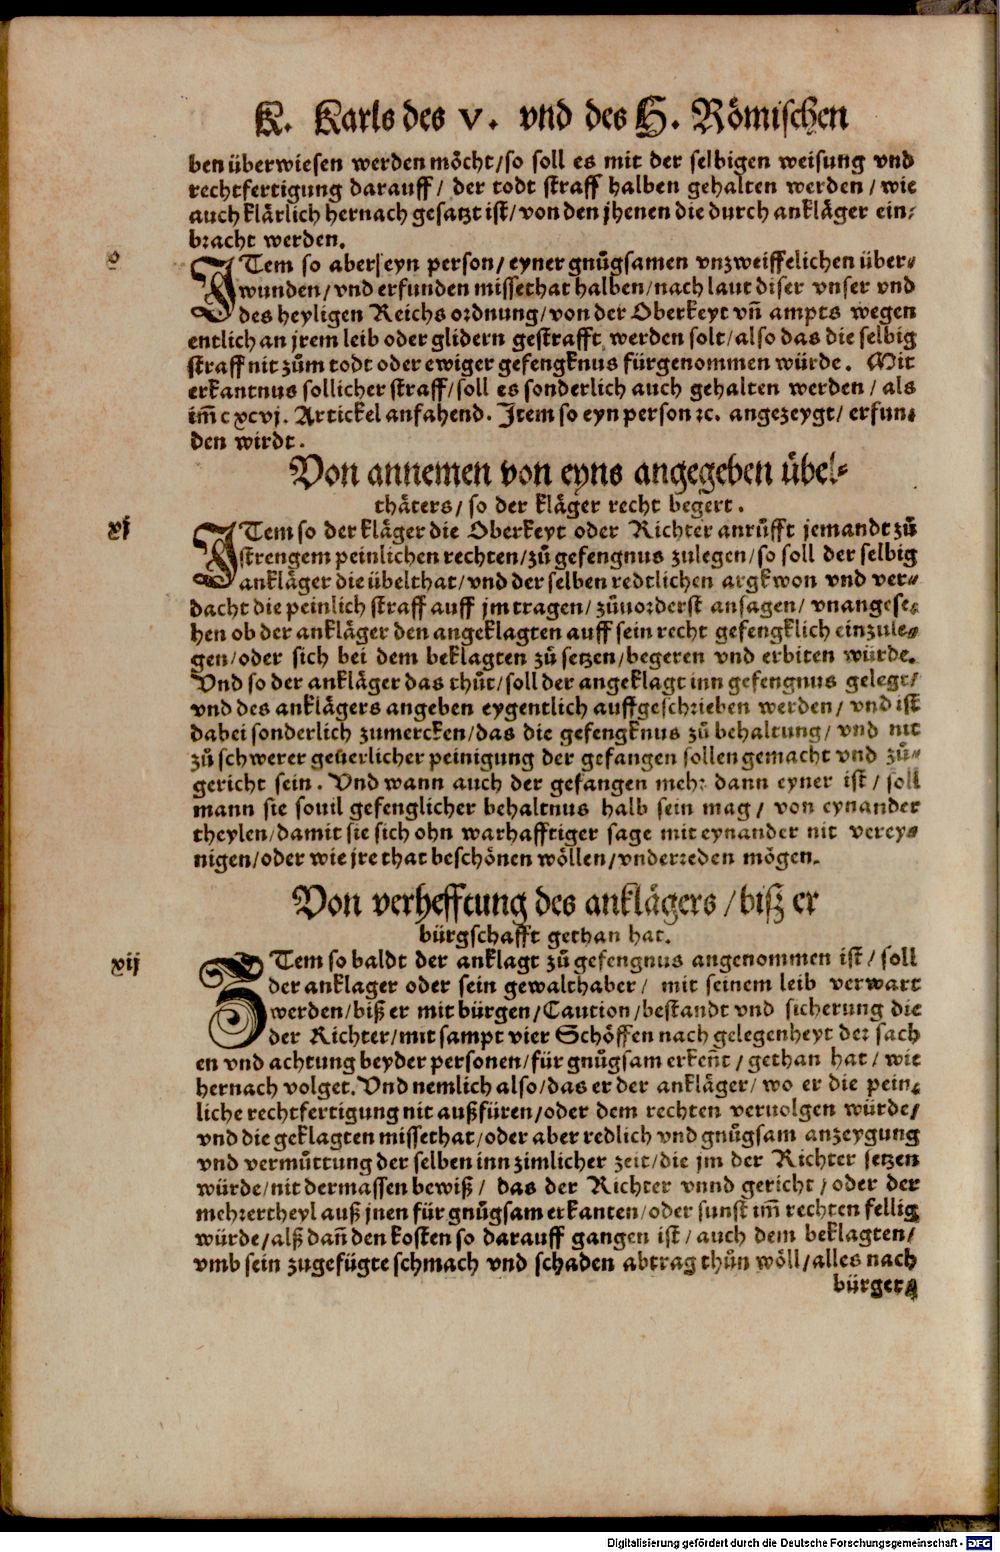 K. Karls des V. vnd des H. Römischen
ben überwiesen werden möcht/so soll es mit der selbigen weisung vnd
rechtfertigung darauff/ der todt straff halben gehalten werden/wie
auch klärlich hernach gesatzt ist/von den jhenen die durch ankläger ein⸗
bracht werden.
o
ITem so aber eyn person/eyner gnůgsamen vnzweiffelichen über⸗
wunden/vnd erfunden missethat halben/nach laut diser vnser vnd
des heyligen Reichs ordnung/von der Oberkeyt vn̄ ampts wegen
entlich an jrem leib oder glidern gestrafft werden solt/also das die selbig
straff nit zům todt oder ewiger gefengknus fürgenommen würde. Mit
erkantnus sollicher straff/soll es sonderlich auch gehalten werden/als
im̄ cxcvj. Artickel anfahend. Item so eyn person ꝛc. angezeygt/erfun⸗
den wirdt.
Von annemen von eyns angegeben übel⸗
thäters/so der kläger recht begert.
xj
ITem so der kläger die Oberkeyt oder Richter anrůfft jemandt zů
strengem peinlichen rechten/zů gefengnus zulegen/so soll der selbig
ankläger die übelthat/vnd der selben redtlichen argkwon vnd ver⸗
dacht die peinlich straff auff jm tragen/zůuorderst ansagen/vnangese⸗
hen ob der ankläger den angeklagten auff sein recht gefengklich einzule⸗
gen/oder sich bei dem beklagten zů setzen/begeren vnd erbiten würde.
Vnd so der ankläger das thůt/soll der angeklagt inn gefengnus gelegt/
vnd des anklägers angeben eygentlich auffgeschrieben werden/vnd ist
dabei sonderlich zumercken/das die gefengknus zů behaltung/vnd nit
zů schwerer geuerlicher peinigung der gefangen sollen gemacht vnd zů⸗
gericht sein. Vnd wann auch der gefangen mehr dann eyner ist/soll
mann sie souil gefenglicher behaltnus halb sein mag/von eynander
theylen/damit sie sich ohn warhafftiger sage mit eynander nit verey⸗
nigen/oder wie jre that beschönen wöllen/vnderreden mögen.
Von verhefftung des anklägers/biß er
bürgschafft gethan hat.
xij
ITem so baldt der anklagt zů gefengnus angenommen ist/soll
der anklager oder sein gewalthaber/mit seinem leib verwart
werden/biß er mit bürgen/Caution/bestandt vnd sicherung die
der Richter/mit sampt vier Schöffen nach gelegenheyt der sach
en vnd achtung beyder personen/für gnůgsam erken̄t/gethan hat/wie
hernach volget. Vnd nemlich also/das er der ankläger/wo er die pein⸗
liche rechtfertigung nit außfüren/oder dem rechten veruolgen würde/
vnd die geklagten missethat/oder aber redlich vnd gnůgsam anzeygung
vnd vermůttung der selben inn zimlicher zeit/die jm der Richter setzen
würde/nit dermassen bewiß/das der Richter vnnd gericht/oder der
mehrertheyl auß jnen für gnůgsam erkanten/oder sunst im̄ rechten fellig
würde/alß dan̄ den kosten so darauff gangen ist/auch dem beklagten/
vmb sein zugefügte schmach vnd schaden abtrag thůn wöll/alles nach
bürger⸗
Digitalisierung gefördert durch die Deutsche Forschungsgemeinschaft - DFG